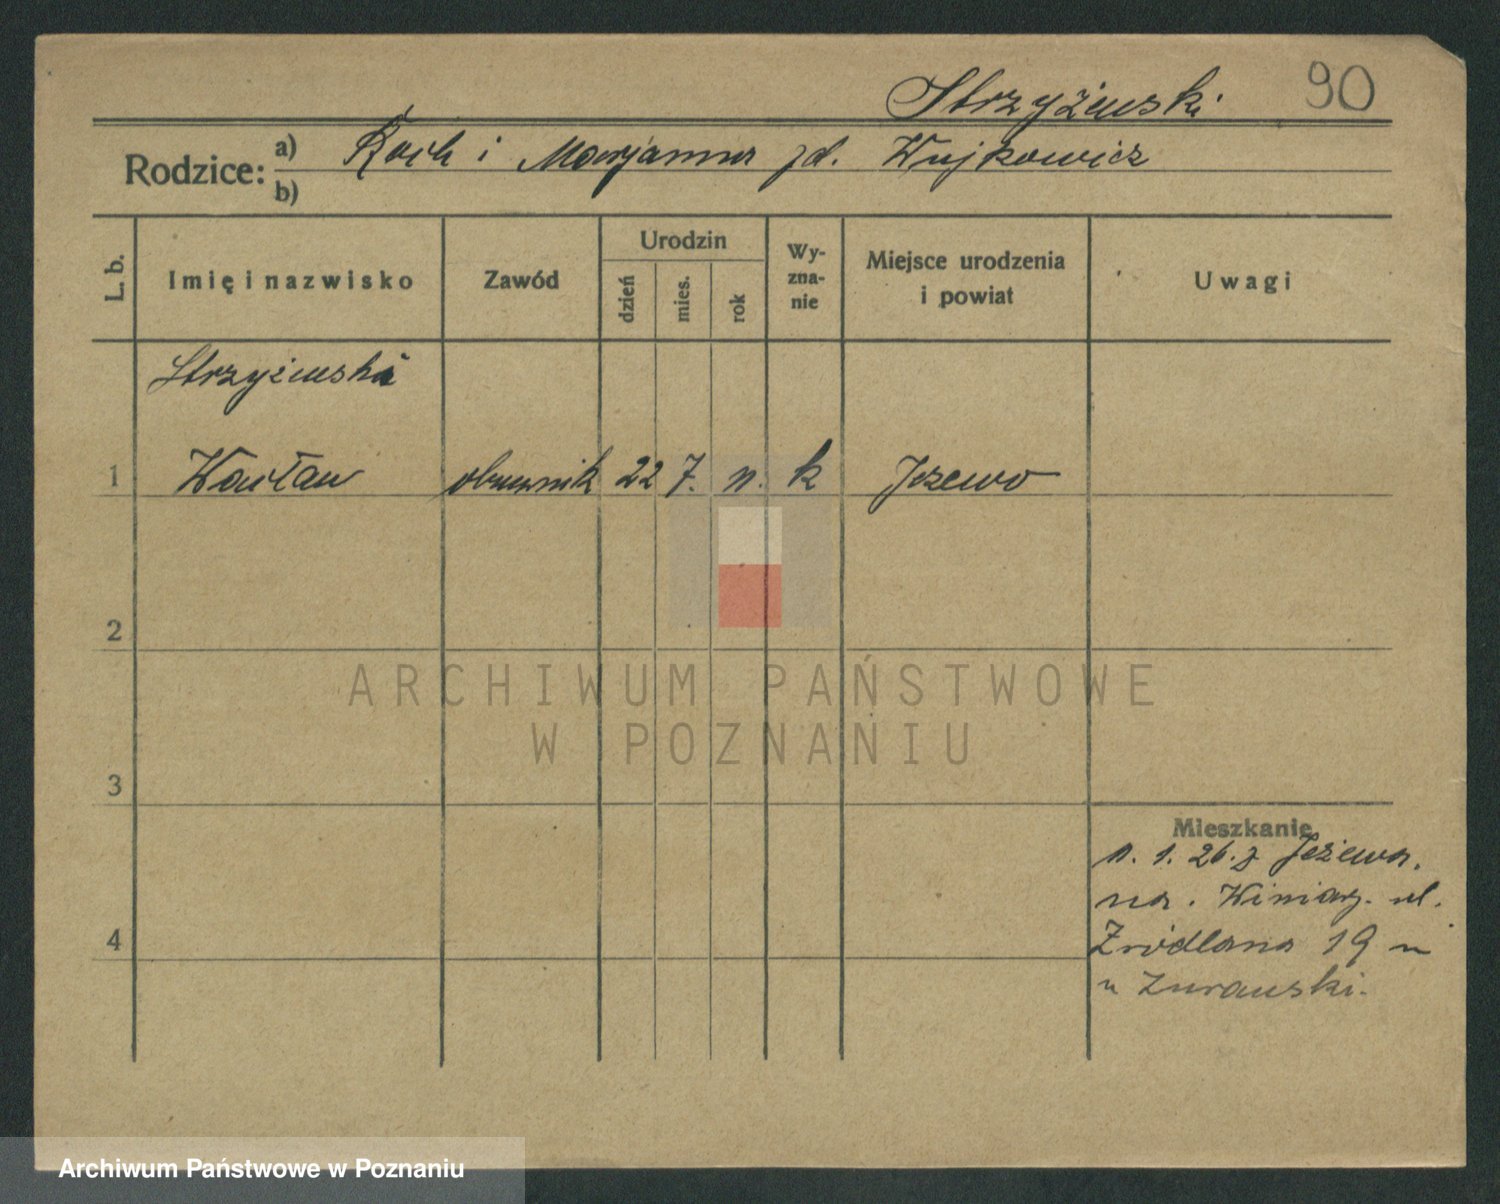 Strzyżewski 90
Rodzice: a) Roch i Marjanna zd. Wujkowicz
b)
L. b. Imię i nazwisko Zawód Urodzin dzień mies. rok Wyznanie Miejsce urodzenia i powiat Uwagi
Strzyżewski
1 Wacław 22 7. k Jeżewo
2
ARCHIWUM PAŃSTWOWE
W POZNANIU
3
Mieszkanie
1. 26. z Jeżewa.
na. Winiary. ul.
4 Źródlana 19
u Żurawski.
Archiwum Państwowe w Poznaniu